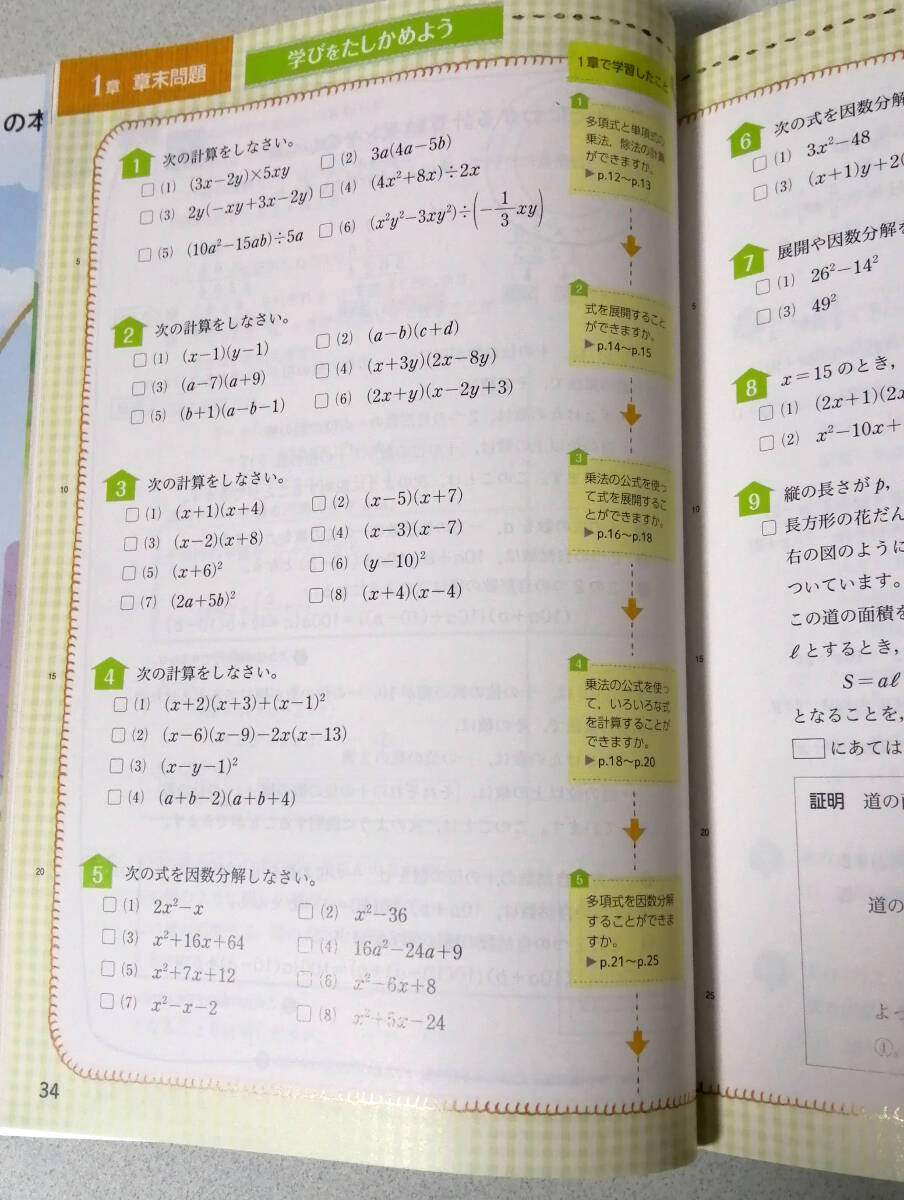 の本
1章 章末問題
学びをたしかめよう
1章で学習したこと
1 次の計算をしなさい。
(1) (3x-2y)×5xy
(2) 3a(4a-5b)
(3) 2y(-xy+3x-2y)
(4) (4x²+8x)÷2x
(5) (10a²-15ab)÷5a
(6) (x²y²-3xy²)÷(-1/3 xy)
1
多項式と単項式の
乗法，除法の計算
ができますか。
▶p.12～p.13
5
2 次の計算をしなさい。
(1) (x-1)(y-1)
(2) (a-b)(c+d)
(3) (a-7)(a+9)
(4) (x+3y)(2x-8y)
(5) (b+1)(a-b-1)
(6) (2x+y)(x-2y+3)
2
式を展開すること
ができますか。
▶p.14～p.15
10
3 次の計算をしなさい。
(1) (x+1)(x+4)
(2) (x-5)(x+7)
(3) (x-2)(x+8)
(4) (x-3)(x-7)
(5) (x+6)²
(6) (y-10)²
(7) (2a+5b)²
(8) (x+4)(x-4)
3
乗法の公式を使っ
て式を展開するこ
とができますか。
▶p.16～p.18
15
4 次の計算をしなさい。
(1) (x+2)(x+3)+(x-1)²
(2) (x-6)(x-9)-2x(x-13)
(3) (x-y-1)²
(4) (a+b-2)(a+b+4)
4
乗法の公式を使っ
て，いろいろな式
を計算することが
できますか。
▶p.18～p.20
20
5 次の式を因数分解しなさい。
(1) 2x²-x
(2) x²-36
(3) x²+16x+64
(4) 16a²-24a+9
(5) x²+7x+12
(6) x²-6x+8
(7) x²-x-2
(8) x²+5x-24
5
多項式を因数分解
することができま
すか。
▶p.21～p.25
34
6 次の式を因数分解
(1) 3x²-48
(3) (x+1)y+2(
5
7 展開や因数分解を
(1) 26²-14²
(3) 49²
8 x=15のとき，
(1) (2x+1)(2x
(2) x²-10x+
10
9 縦の長さがp，
長方形の花だん
右の図のように
ついています。
この道の面積を
ℓとするとき，
15
S=aℓ
となることを，
□にあては
20
証明 道の面
道の
25
よっ
①，